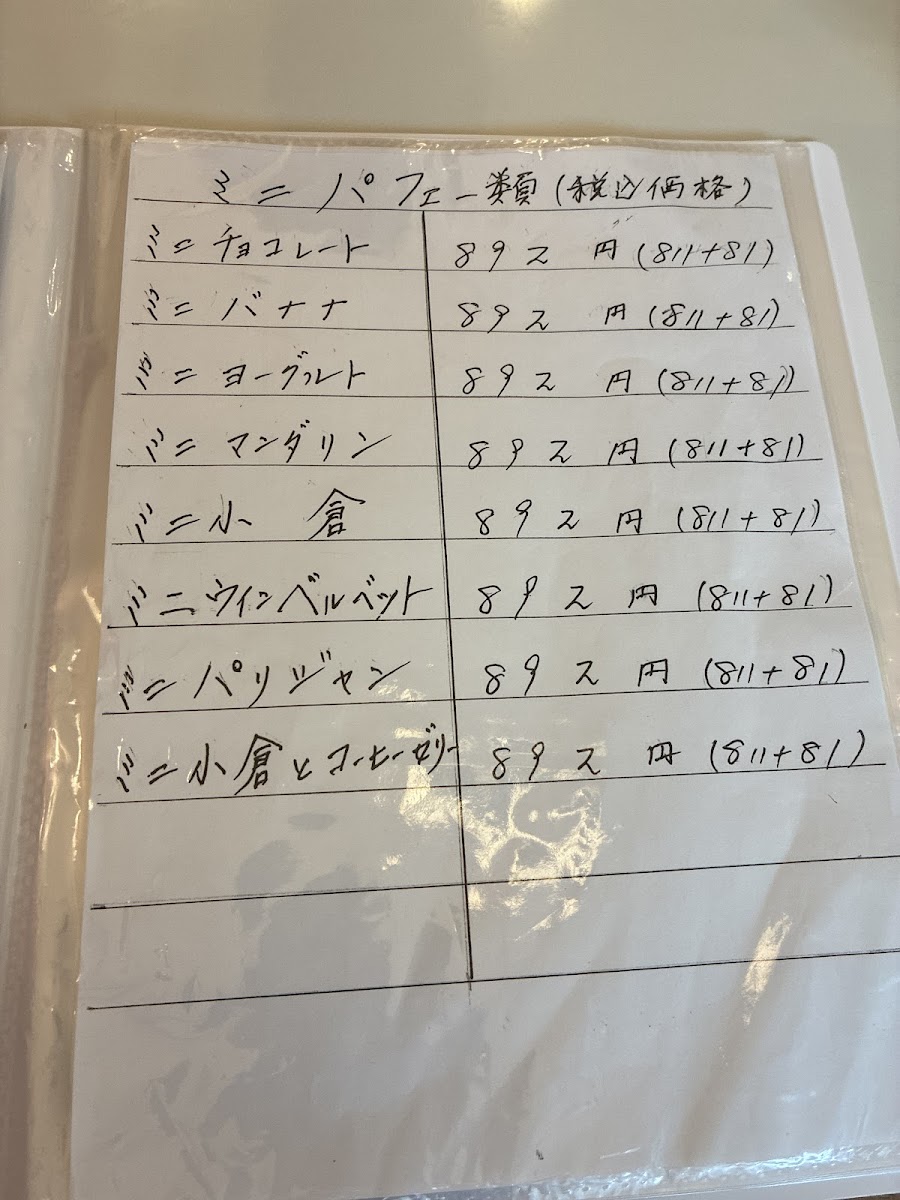 ミニパフェー類(税込価格)
ミニチョコレート 892円(811+81)
ミニバナナ 892円(811+81)
ミニヨーグルト 892円(811+81)
ミニマンダリン 892円(811+81)
ミニ小倉 892円(811+81)
ミニウインベルベット 892円(811+81)
ミニパリジャン 892円(811+81)
ミニ小倉とコーヒーゼリー 892円(811+81)